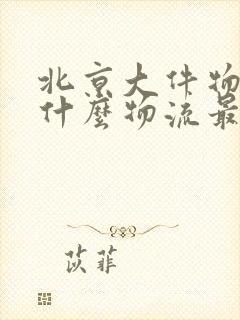 北京大件物
什麼物流最
苡菲